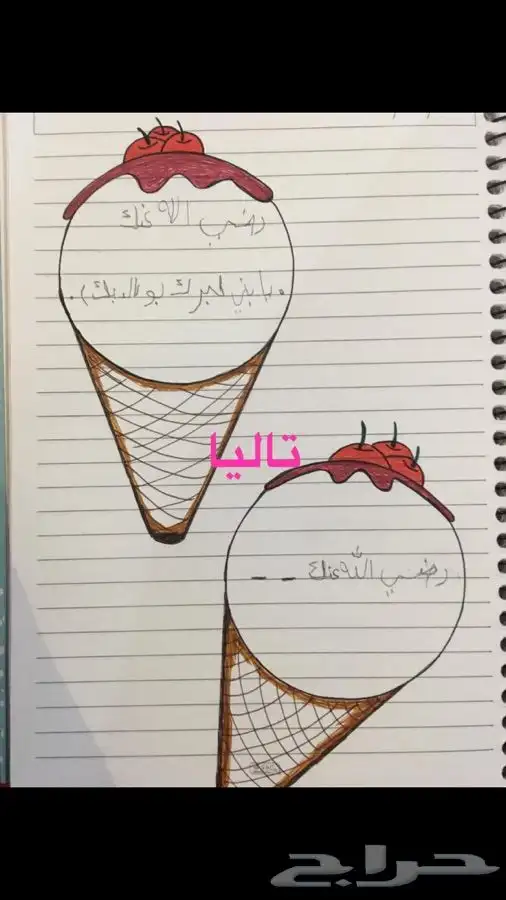 رضي الله عنك
يا بني لبرك بوالديك).
تاليا
رضي الله عنك - -
حراج